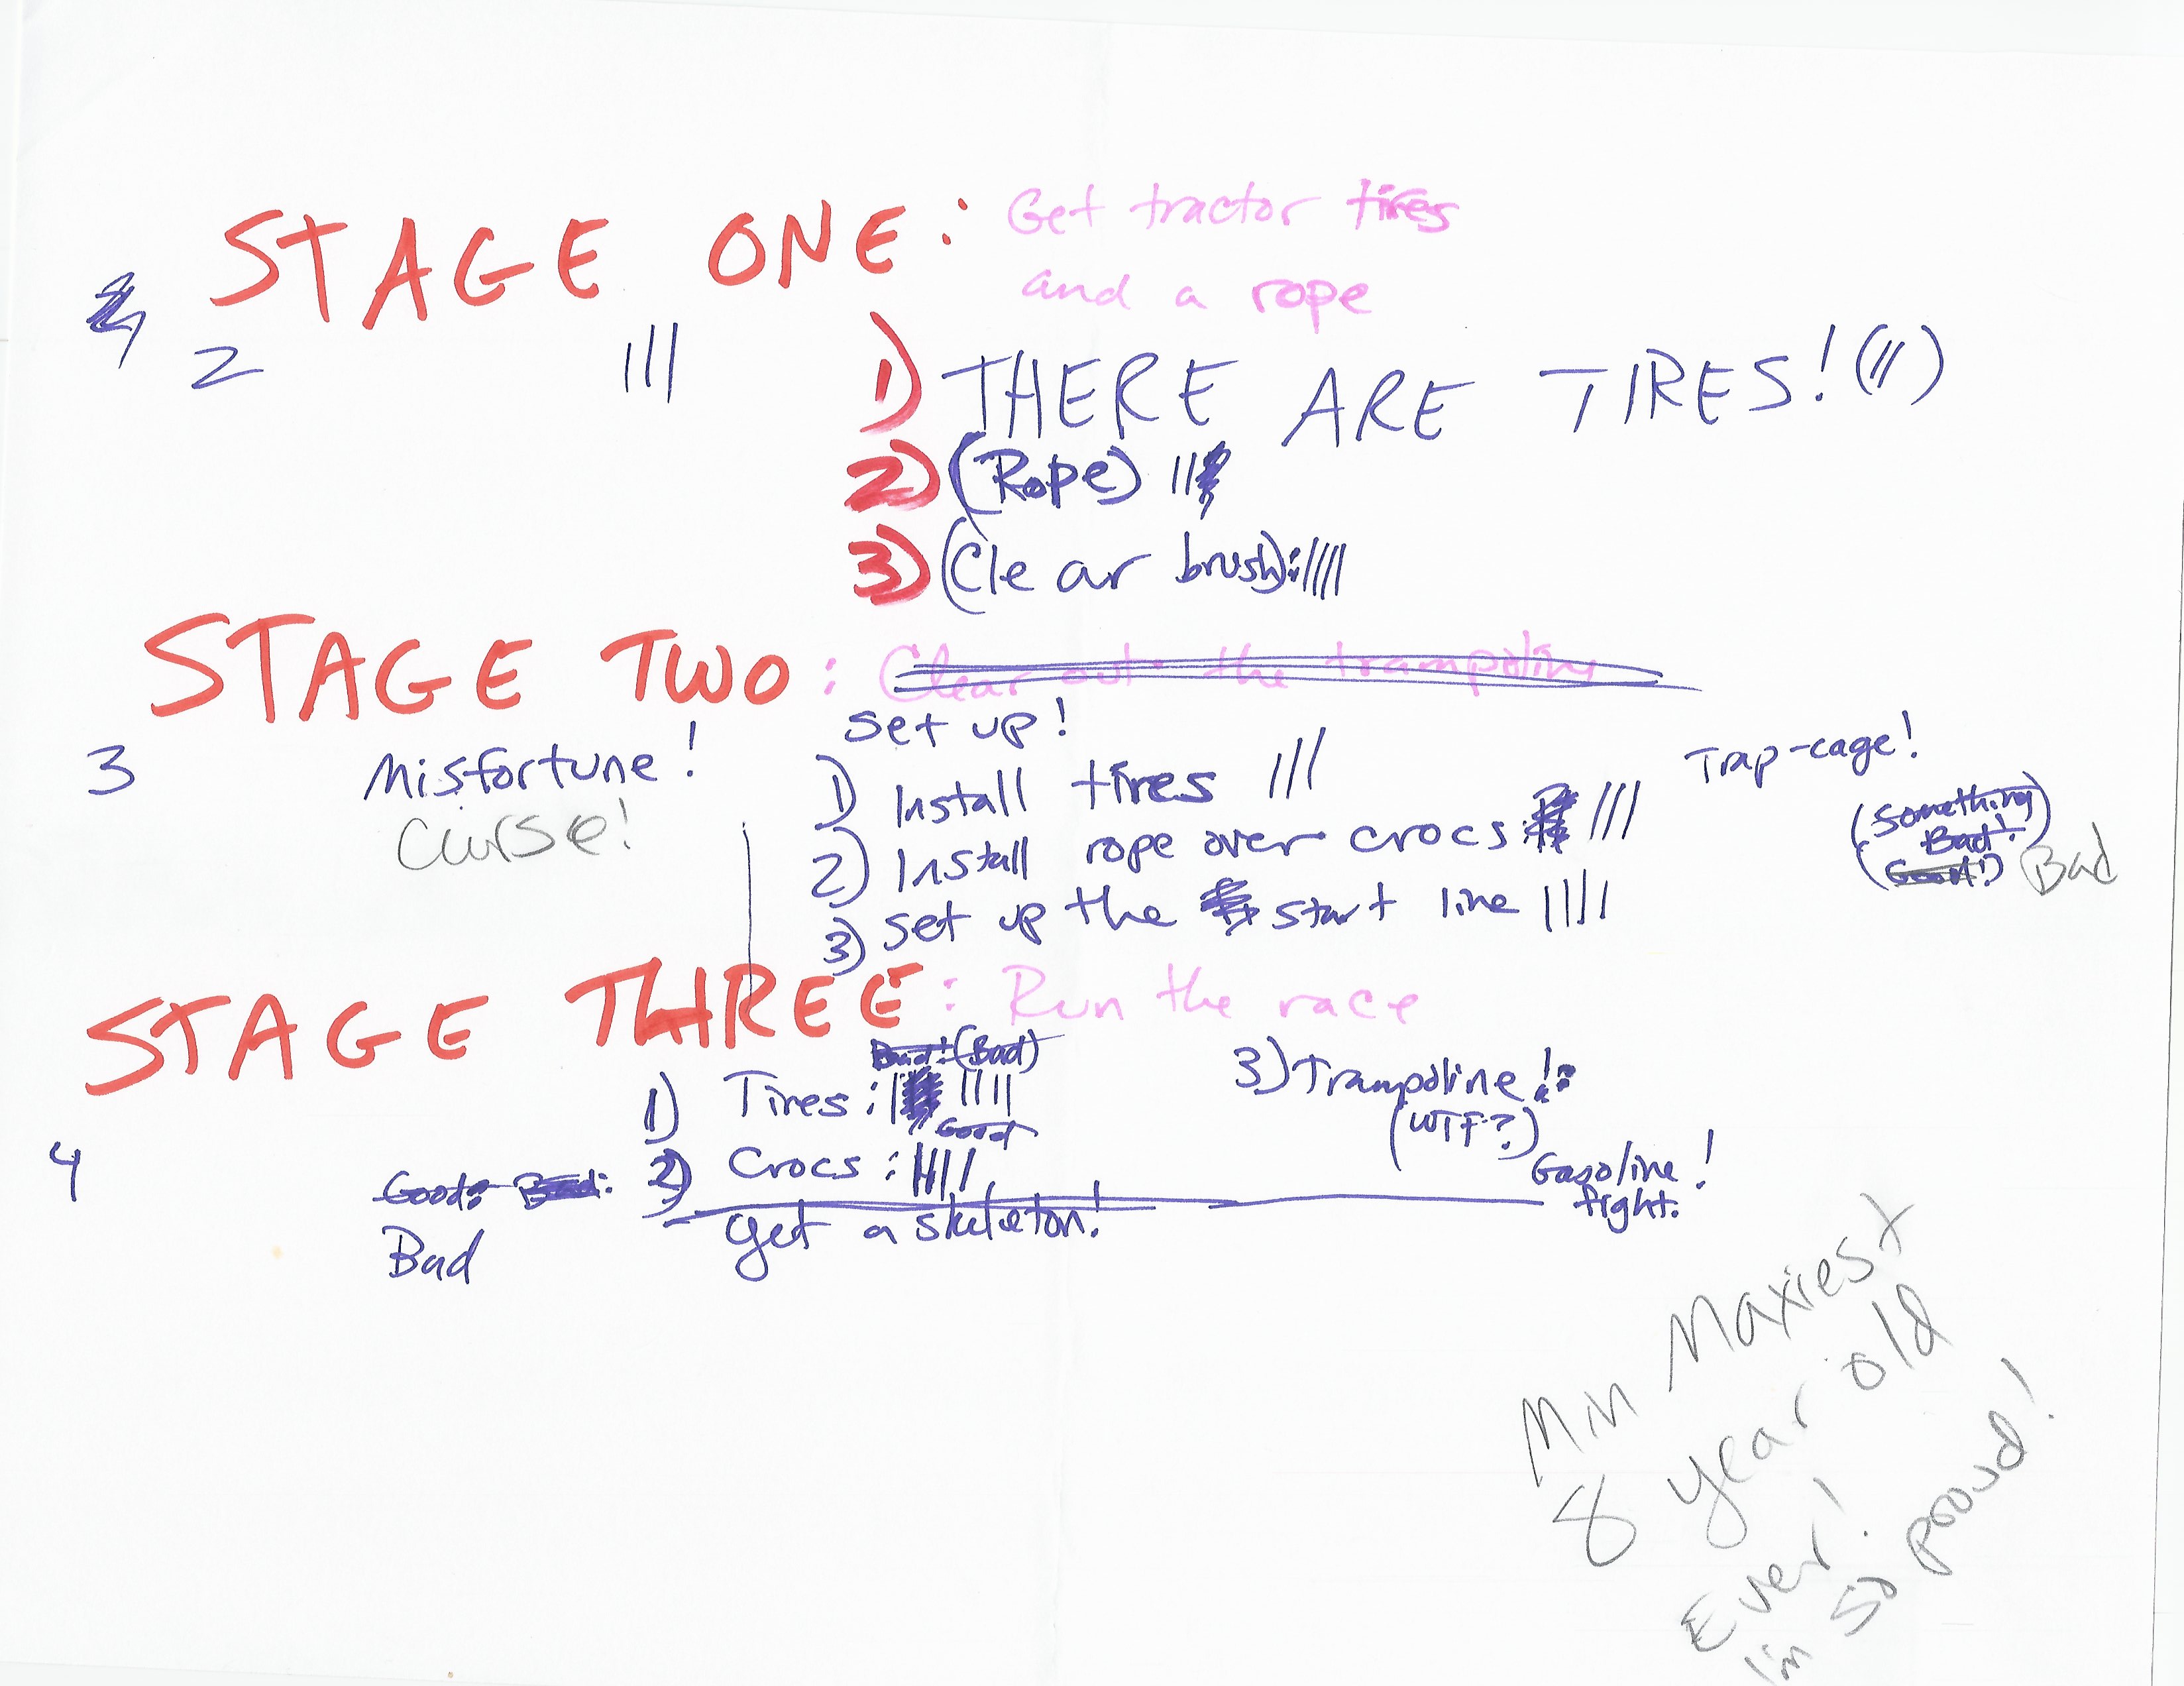 STAGE ONE: Get tractor tires
and a rope
4
2 |||
1) THERE ARE TIRES! (||)
2) (Rope) ||
3) (Clear brush): ||||
STAGE TWO: Clear out the trampoline
set up!
3 Misfortune!
Curse!
1) Install tires |||
2) Install rope over crocs: |||
3) set up the start line ||||
Trap-cage!
(Something
Bad!
Good!) Bad
STAGE THREE: Run the race
Bad! (Bad)
1) Tires: | ||||
Good
4
Good: Bad: 2) Crocs: ||||
Bad
get a skeleton!
3) Trampoline!:
(WTF?)
Gasoline!
fight.
Min Maxiest
8 year old
Ever!
I'm so proud!